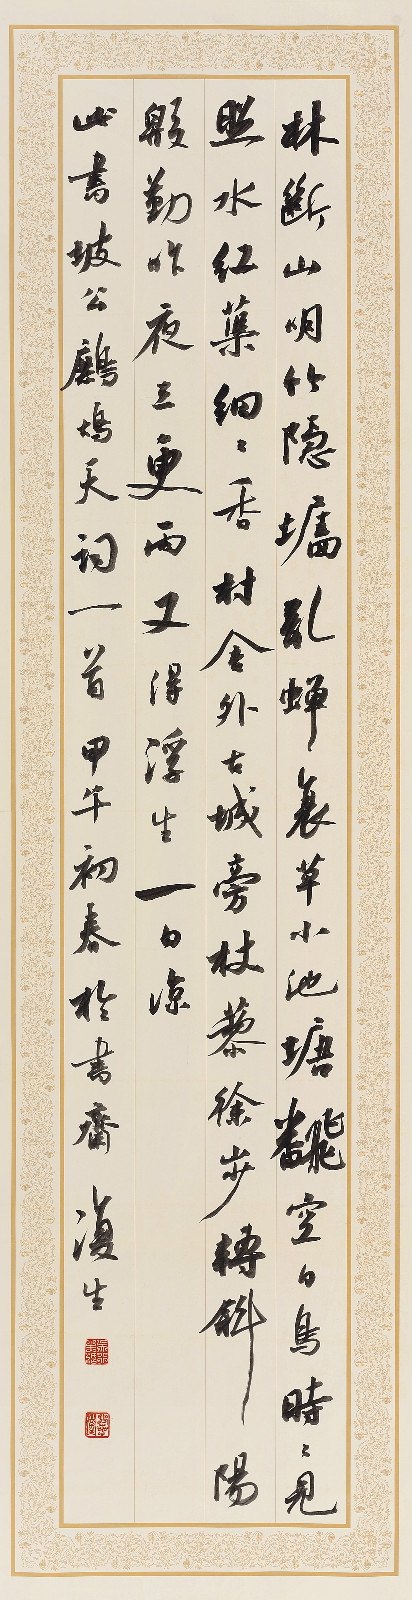 林斷山明竹隱墻亂蟬衰草小池塘飜空白鳥時〻見
照水紅蕖細〻香村舍外古城旁杖藜徐步轉斜陽
殷勤昨夜三更雨又得浮生一日涼
此書坡公鷓鴣天詞一首甲午初春於書齋復生